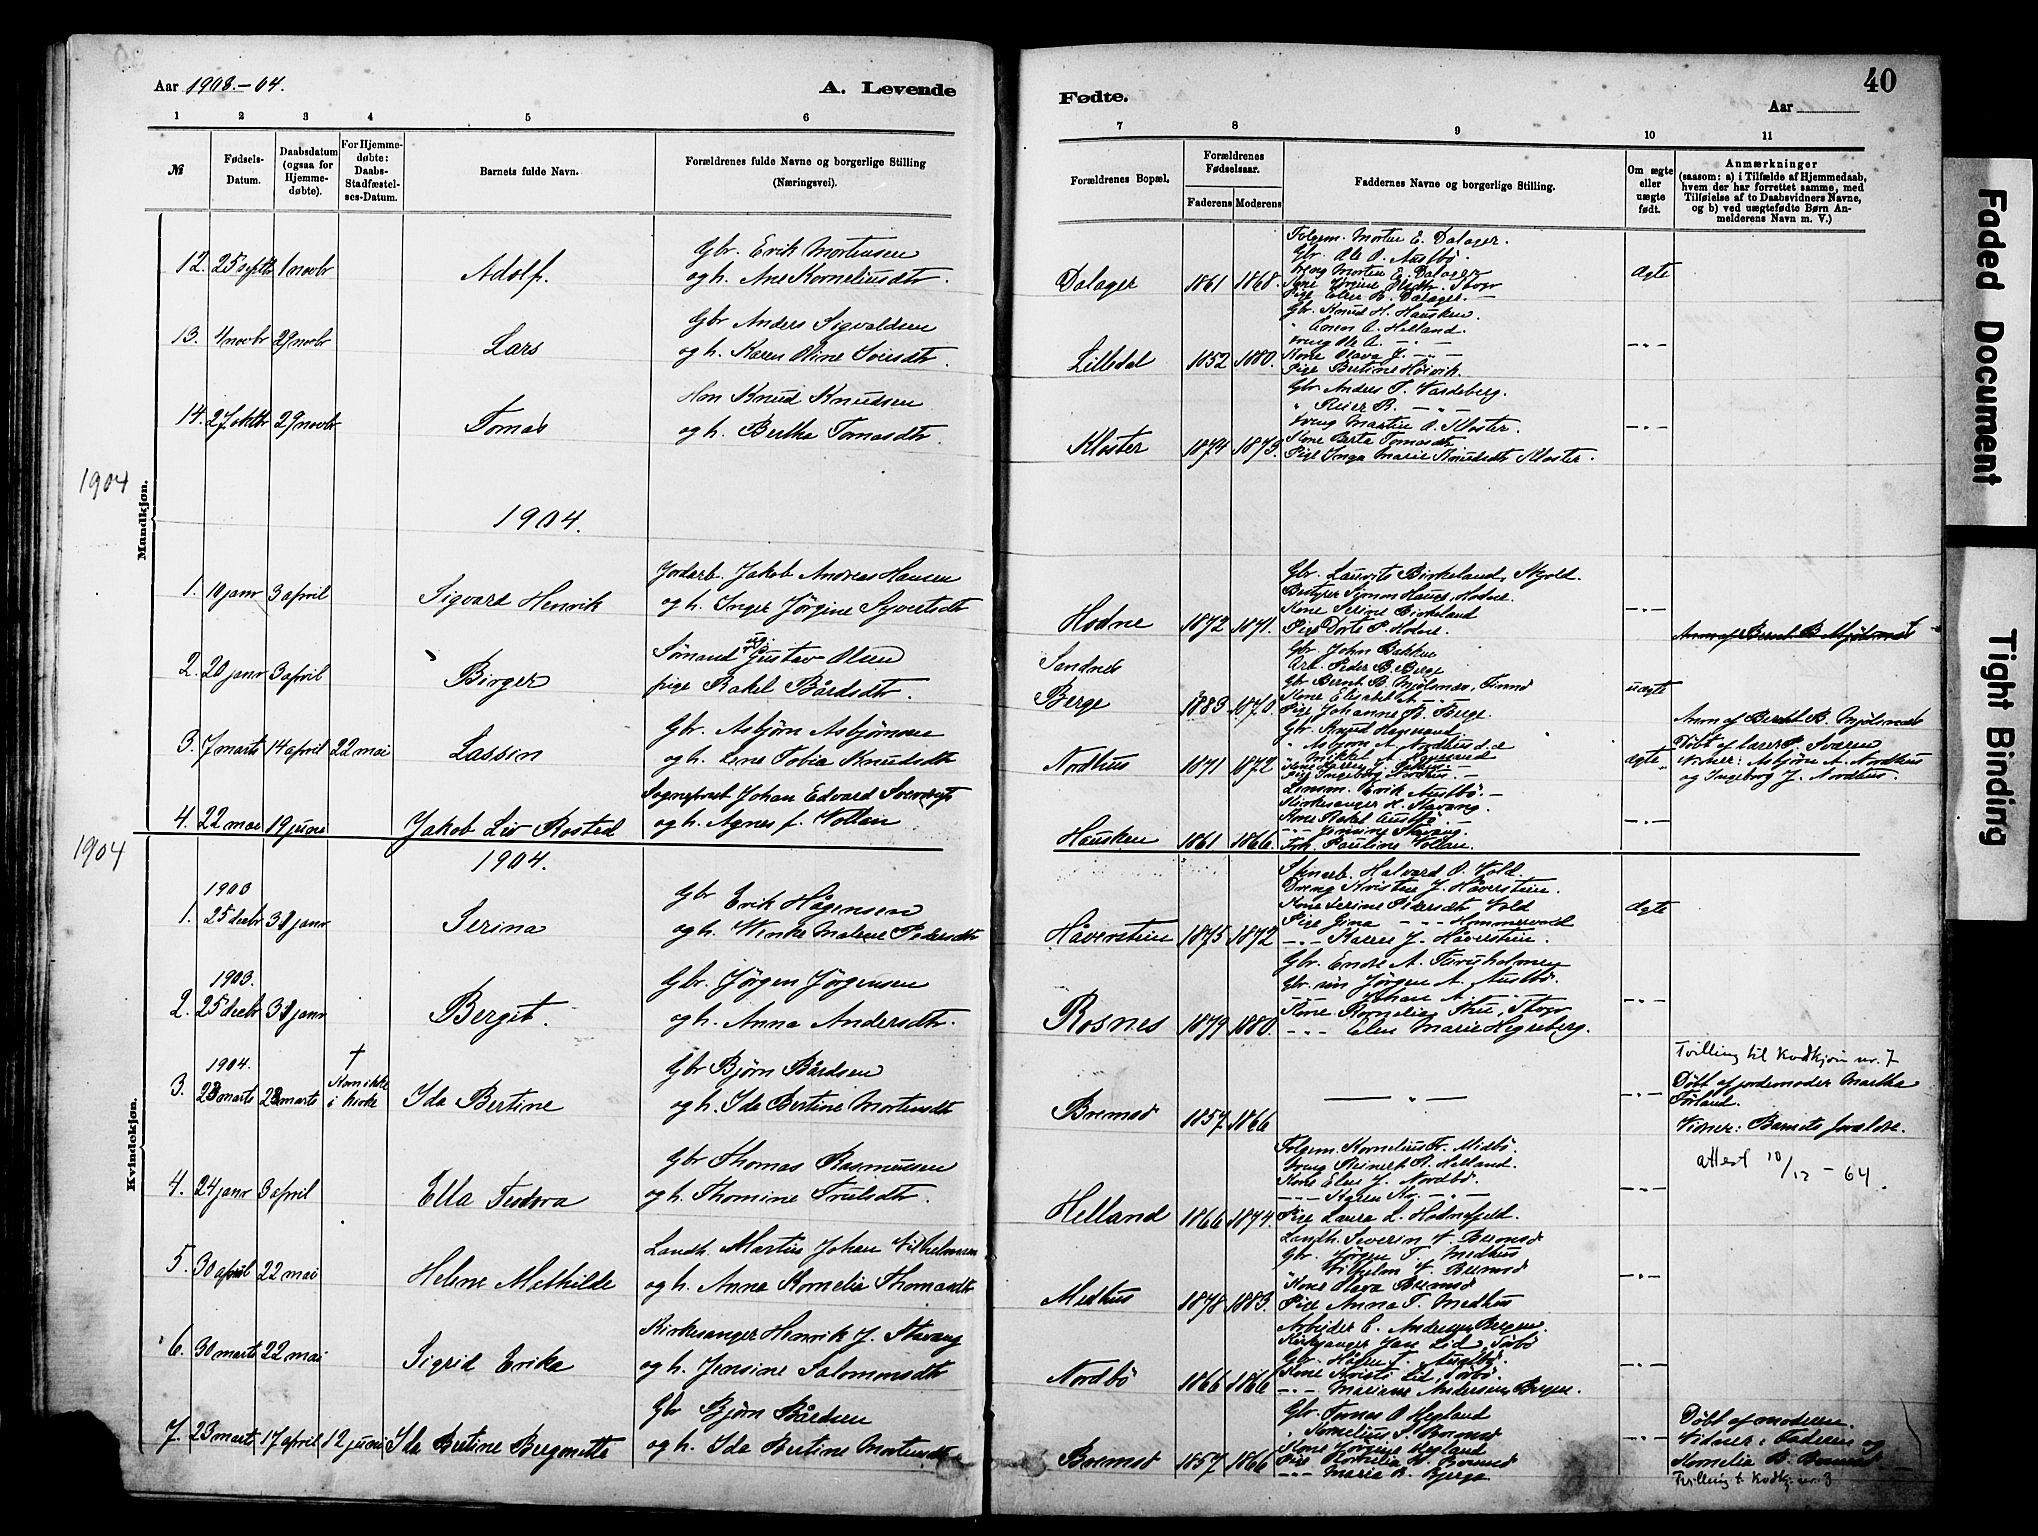 40
Aar 1903.-04.
A. Levende
Fødte.
Aar
1 2 3 4 5 6
7 8 9 10 11
№
Fødsels-
Datum.
Daabsdatum
(ogsaa for
Hjemme-
døbte).
For Hjemme-
døbte:
Daabs-
Stadfæstel-
ses-Datum.
Barnets fulde Navn.
Forældrenes fulde Navne og borgerlige Stilling
(Næringsvei).
Forældrenes Bopæl.
Forældrenes
Fødselsaar.
Faderens
Moderens
Faddernes Navne og borgerlige Stilling.
Om ægte
eller
uægte
født.
Anmærkninger
(saasom: a) i Tilfælde af Hjemmedaab,
hvem der har forrettet samme, med
Tilføielse af to Daabsvidners Navne,
og b) ved uægtefødte Børn An-
melderens Navn m. V.)
Mandkjøn.
12. 25 septb 1 novbr
Adolf.
Gbr. Erik Mortensen
og h. Ane Korneliusdtr.
Dalager 1861 1868.
Folgem. Morten E. Dalager.
Gbr. Ole O. Austbø.
Dreng Morten E. Dalager
Pige Elen K. Dalager.
ægte
13. 4 novbr 29 novbr
Lars
Gbr Anders Sigvaldsen
og h. Karen Oline
Lillsdal 1852 1880.
Gbr. Knud H. Hausken.
" Enon O. Helland.
Dreng Ole A. - " -
Kone Olava J. - " -
Pige Bertine Høivik.
- " -
14. 27 oktbr 29 novbr
Tomas
Hm Knud Knudsen
og h. Bertha Tomasdtr.
Kloster 1874 1873.
Gbr. Anders T. Vardeberg.
" Reier R. - " -
Dreng Martin O. Kloster.
Kone Berta Tomasdtr
Pige Inga Marie Knudsdtr Kloster.
- " -
1904
1904.
1. 10 janr 3 april
Sigvard Henrik
Jordarb. Jakob Andreas Hansen
og h. Inger Jørgine Syvertsdtr
Hodne 1872 1871.
Gbr. Laurits Birkeland, Skjold.
Kone Serine Birkeland
Pige Dorte P. Hodne.
- " -
2. 20 janr 3 april
Birger
Sømand Gustav Olsen
pige Rakel Bårdsdtr.
Sandnes
Berge 1883 1870.
Gbr. John Bakken
Arb. Peder B. Berge
Gbr Bernt B. Mjølsnæs, Finnø
Kone Elisabet A. - " -
Pige Johanne B. Berge.
uægte
Anm af Bernt B. Mjølsnæs
3. 7 marts 14 april 22 mai
Lassin
Gbr. Asbjørn Asbjørnsen
og h. Lene Tobia Knudsdtr
Nordhus 1871 1872
Gbr. Knud Hagenand
" Asbjørn A. Nordhus d.e
Pige Ingeborg Nordhus.
ægte
Anm af Berent B. Mjølsnæs
Døbt af lærer P. Sværen
Vidner: Asbjørn A. Nordhus
og Ingeborg J. Nordhus.
4. 22 mai 19 juni
Jakob Liv Rosted
Sogneprest Johan Edvard Sverdrup
og h. Agnes f. Vollan
Hausken 1861 1866.
Lensm. Erik Austbø. -
Kirkesanger H. Stavang.
Kone Rakel Austbø.
- " - Jensine Stavang.
Frk. Pauline Vollan.
- " -
1904
1904.
Kvindekjøn.
1903
1. 25 decbr 31 janr
Serina
Gbr Erik Hågensen
og h. Wenke Malene Pedersdtr
Håverstein 1875 1872
Stenarb. Halvard O. Vold.
Dreng Kristen J. Håverstein.
Kone Serine Pedersdtr Vold
Pige Gina - " - Hommersand
- " - Karen J. Håverstein.
ægte
1903.
2. 25 decbr 31 janr
Berget.
Gbr. Jørgen Jørgensen
og h. Anna Andersdtr.
Rosnes 1879 1880.
Gbr. Endre A. Furuholmen
Gbr. søn Jørgen A. Austbø.
- " - Johan A. - " -
- " - Elen Marie Hegreberg.
- " -
1904.
3. 23 marts 23 marts
†
Kom ikke
i Kirke
Ida Bertine
Gbr Bjørn Bårdsen
og h. Ida Bertine Mortensdtr
Bremsø 1857 1866
— " —
- " -
Tvilling til Kvdkjøn nr. 7
Døbt af jordemoder Martha
Førland.
Vidner: Barnets forældre.
attest 10/12 - 64.
4. 24 janr 3 april
Ella Teodora
Gbr Thomas Rasmussen
og h. Thomine Trulsdtr.
Helland 1866 1874.
Folgem. Kornelius Tr. Midbø.
Dreng Steinert R. Helland.
Kone Elen J. Nordbø.
- " - Karen Kr. - " -
Pige Laura L. Hodnefjeld.
- " -
5. 30 april 22 mai
Helene Mathilde
Landh. Martin Johan Vilhelmsen
og h. Anna Kornelia Thomasdtr
Medhus 1878 1883.
Landh. Severin V. Bremsø
Gbr. Jørgen T. Medhus
" Vilhelm V. Bremsø
Kone Olava Bremsø
Pige Anna T. Medhus
- " -
6. 30 marts 22 mai
Sigrid Erika
Kirkesanger Henrik J. Stavang
og h. Jensine Salomonsdtr
Nordbø 1866 1866
Arbeider C. Andersen Bergen.
Kirkesanger Jan Lid, Førbø
Gbr. Håken T. Austbø.
Kone Kristi Lid, Førbø.
- " - Mariane Andersen, Bergen.
- " -
7. 23 marts 17 april 12 juni
Ida Bertine Bergmitte
Gbr Bjørn Bårdsen
og h. Ida Bertine Mortensdtr
Bremsø 1857 1866
Gbr. Tomas O Hegland
" Kornelius S. Bremsø
Kone Jørgine Hegland
Pige Kornelia B. Bremsø
- " - Maria B. Bjerga
- " -
Døbt af moderen.
Vidner: Faderen og
Kornelia B. Bremsø
Tvilling t. Kvdkj. nr. 3
Faded Document
Tight Binding